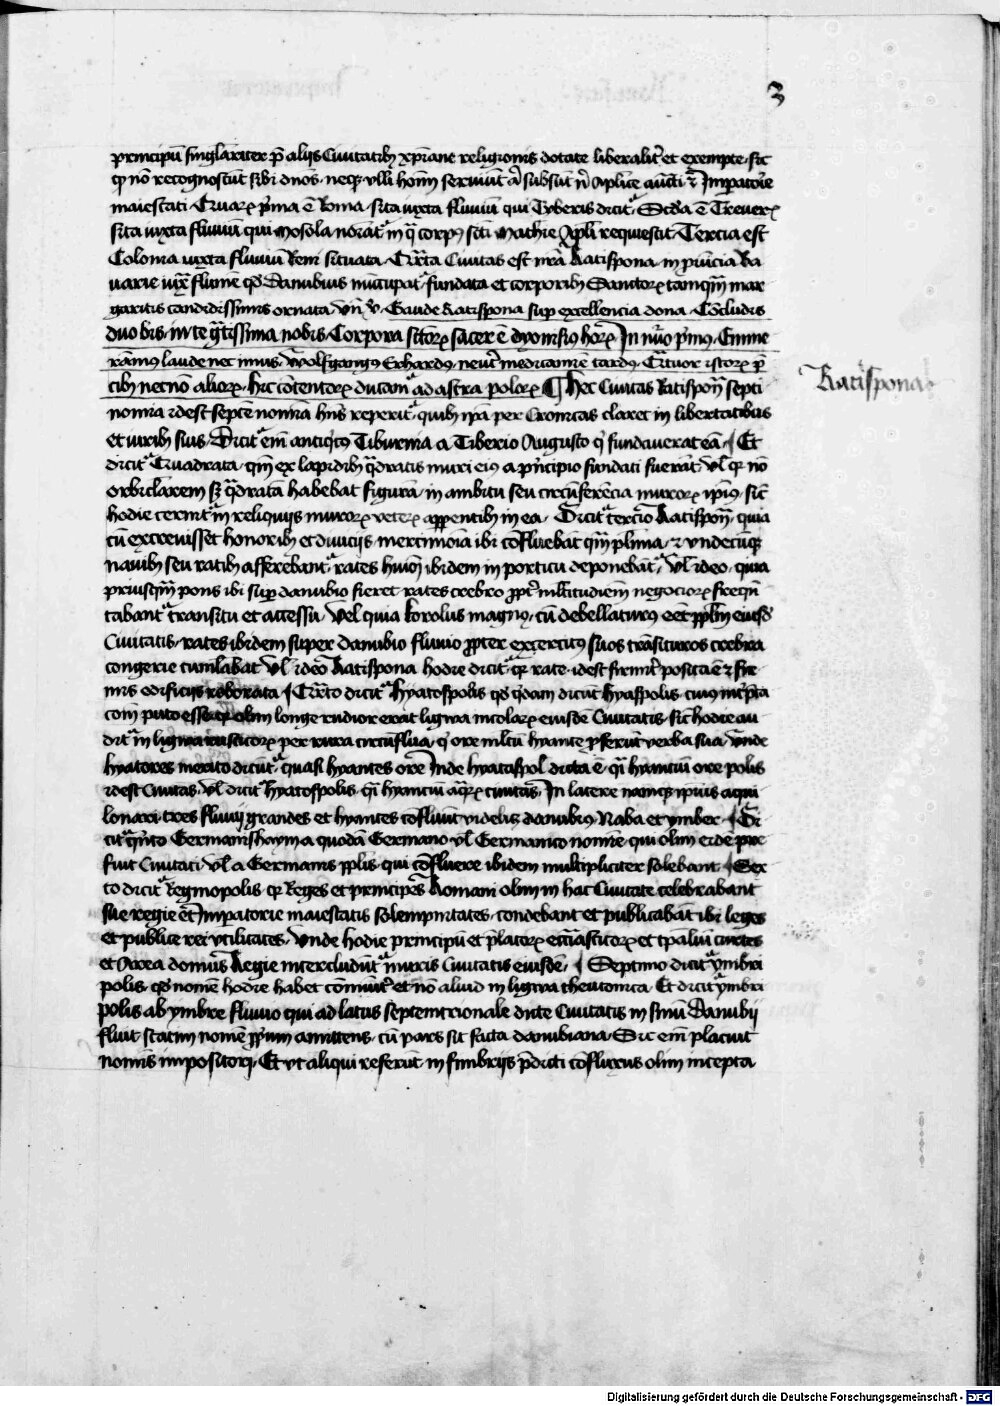 3
principū singlariter p̄ alijs Ciuitatib; xp̄iane religionis dotate liberalit̄ et exempte. sic
ꝙ nō recognoscūt sibi dnōs. neq; vlli homī seruiūt
maiestati. Quaꝝ p̄ma ē Roma. sita iuxta fluuiū qui Tyberis dicit᷑. Scd̄a ē Treueꝝ
sita iuxta fluuiū qui Mosella in q̄ corp⁹ scti Mathie Apl̄i requiescit. Tercia est
Colonia iuxta fluuiū Reni situata. Q̄rta Ciuitas est nr̄a Ratispona. in p̄uīcia Ba
uarie iux̄ flumē qd̄ Danubius nūcupat᷑. fundata et corporib; Sanctoꝝ tamq̄m mar
garitis candidissimis ornata. vn̄ v̄. Gaude Ratispona sup excellencia dona. Cōcludis
duo bis. in te g̃tissima nobis. Corpora sctōꝝ sacer ē dyonisi⁹ hoꝝ. In nūo p̄mus. Emme
ram⁹ laude nec imus. Wolfgang⁹ Erhardus. neut᷑ medicamīe tardus. Q̄tuor istoꝝ p̄
cib; necnō alioꝝ. hic cōtentoꝝ ducam᷑ ad astra poloꝝ ¶ Hec Ciuitas Ratispoñ septi
Ratispona
nomia idest septē nomīa hn̄s reperit᷑. quib; ip̄a per Cronicas claret in libertatibus
et iurib; suis. Dicit᷑ em̄ antiq̄t⁹ Tiburnia a Tiberio Augusto q̄ fundauerat eā. Et
dicit᷑ Quadrata. qm̄ ex lapidib; q̄dratis muri eius a p̄ncipio fundati fuerāt. vl̄ ꝙ nō
orbiclarem sꝫ q̄dratā habebat figurā. in ambitu seu circūferēcia muroꝝ ip̄ius. sic̄
hodie cernit᷑ in reliquijs muroꝝ veteꝝ apparentib; in ea. Dicit᷑ tercio Ratispoñ. quia
cū excreuisset honorib; et diuicijs. mercimōia ibi cōfluebat q̄m pl̄ima. et vndecūq;
nauib; seu ratib; afferebant᷑. rates huiōi ibidem in porticu deponebāt᷑. Vl̄ ideo. quia
priusq̄m pons ibi sup danubio fieret. rates crebro ꝓpt̄ ml̄titudinēm negocioꝝ freqn̄
tabant᷑ transitu et accessu. Vel quia Korolus magn⁹. cū debellatur⁹ eēt pplm̄ eiusd̄
Ciuitatis. rates ibidem super danubio fluuio ꝓpter exercit⁹ suos trāsituros crebra
congerie cumlabat. Vl̄ ideo Ratispona hodie dicit᷑. ꝙ rate. idest firmit̄ posita ē et fir
mis edificijs roborata. Q̄rto dicit᷑ Hyatospolis qd̄ q̄dam dicūt Hyaspolis. cuius
com̄ puto esse. ꝙ olim longe rudior erat ligwa incolaꝝ eiusdē Ciuitatis. sic̄ hodie au
dit᷑ in ligwa rusticoꝝ per rura circūflua. q̄ ore ml̄tū hyante ꝓferūt verba sua. Vnde
hyatores merito dicūt᷑. quasi hyantes ore. Inde hyatispol̄ dicta ē. q̄i hyanciū ore polis
idest Ciuitas. Vl̄ dicit᷑ hyatospolis. q̄i hyanciū aq̄ꝝ ciuitas. In latere namq; ipsius aqui
lonari. tres fluuij grandes et hyantes cōfluūt videlis danubius. Naba et ymber. Di
cit᷑ q̄nto Germansshaym a quodā Germano. vl̄ Germanico nomīe. qui olim eidē pre
fuit Ciuitati. Vl̄ a Germanis pplis. qui cōfluere ibidem multipliciter solebant. Sex
to dicit᷑ Regnopolis. ꝙ Reges et principes Romani olim in hac Ciuitate celebrabant
sue regie et Impatorie maiestatis solempnitates. condebant et publicabāt ibi leges
et publice rei vtilitates. Vnde hodie principū et p̄latoꝝ et tp̄aliū curtes
et Area domus Regie intercludūt᷑ muris Ciuitatis eiusdē. Septimo dicit᷑ ymbri
polis. qd̄ nomē hodie habet cōmunit̄. et nō aliud in ligwa theutonica. Et dicit᷑ ymbri
polis ab ymbre fluuio qui ad latus septemtrionale dicte Ciuitatis in sinū Danubij
fluit statim nomē ꝓprium amittens. cū pars sit facta danubiana. Sic em̄ placuit
nomīs impositori. Et vt aliqui referūt. in fimbrijs p̄dicti cōfluxus olim incepta
Digitalisierung gefördert durch die Deutsche Forschungsgemeinschaft - DFG